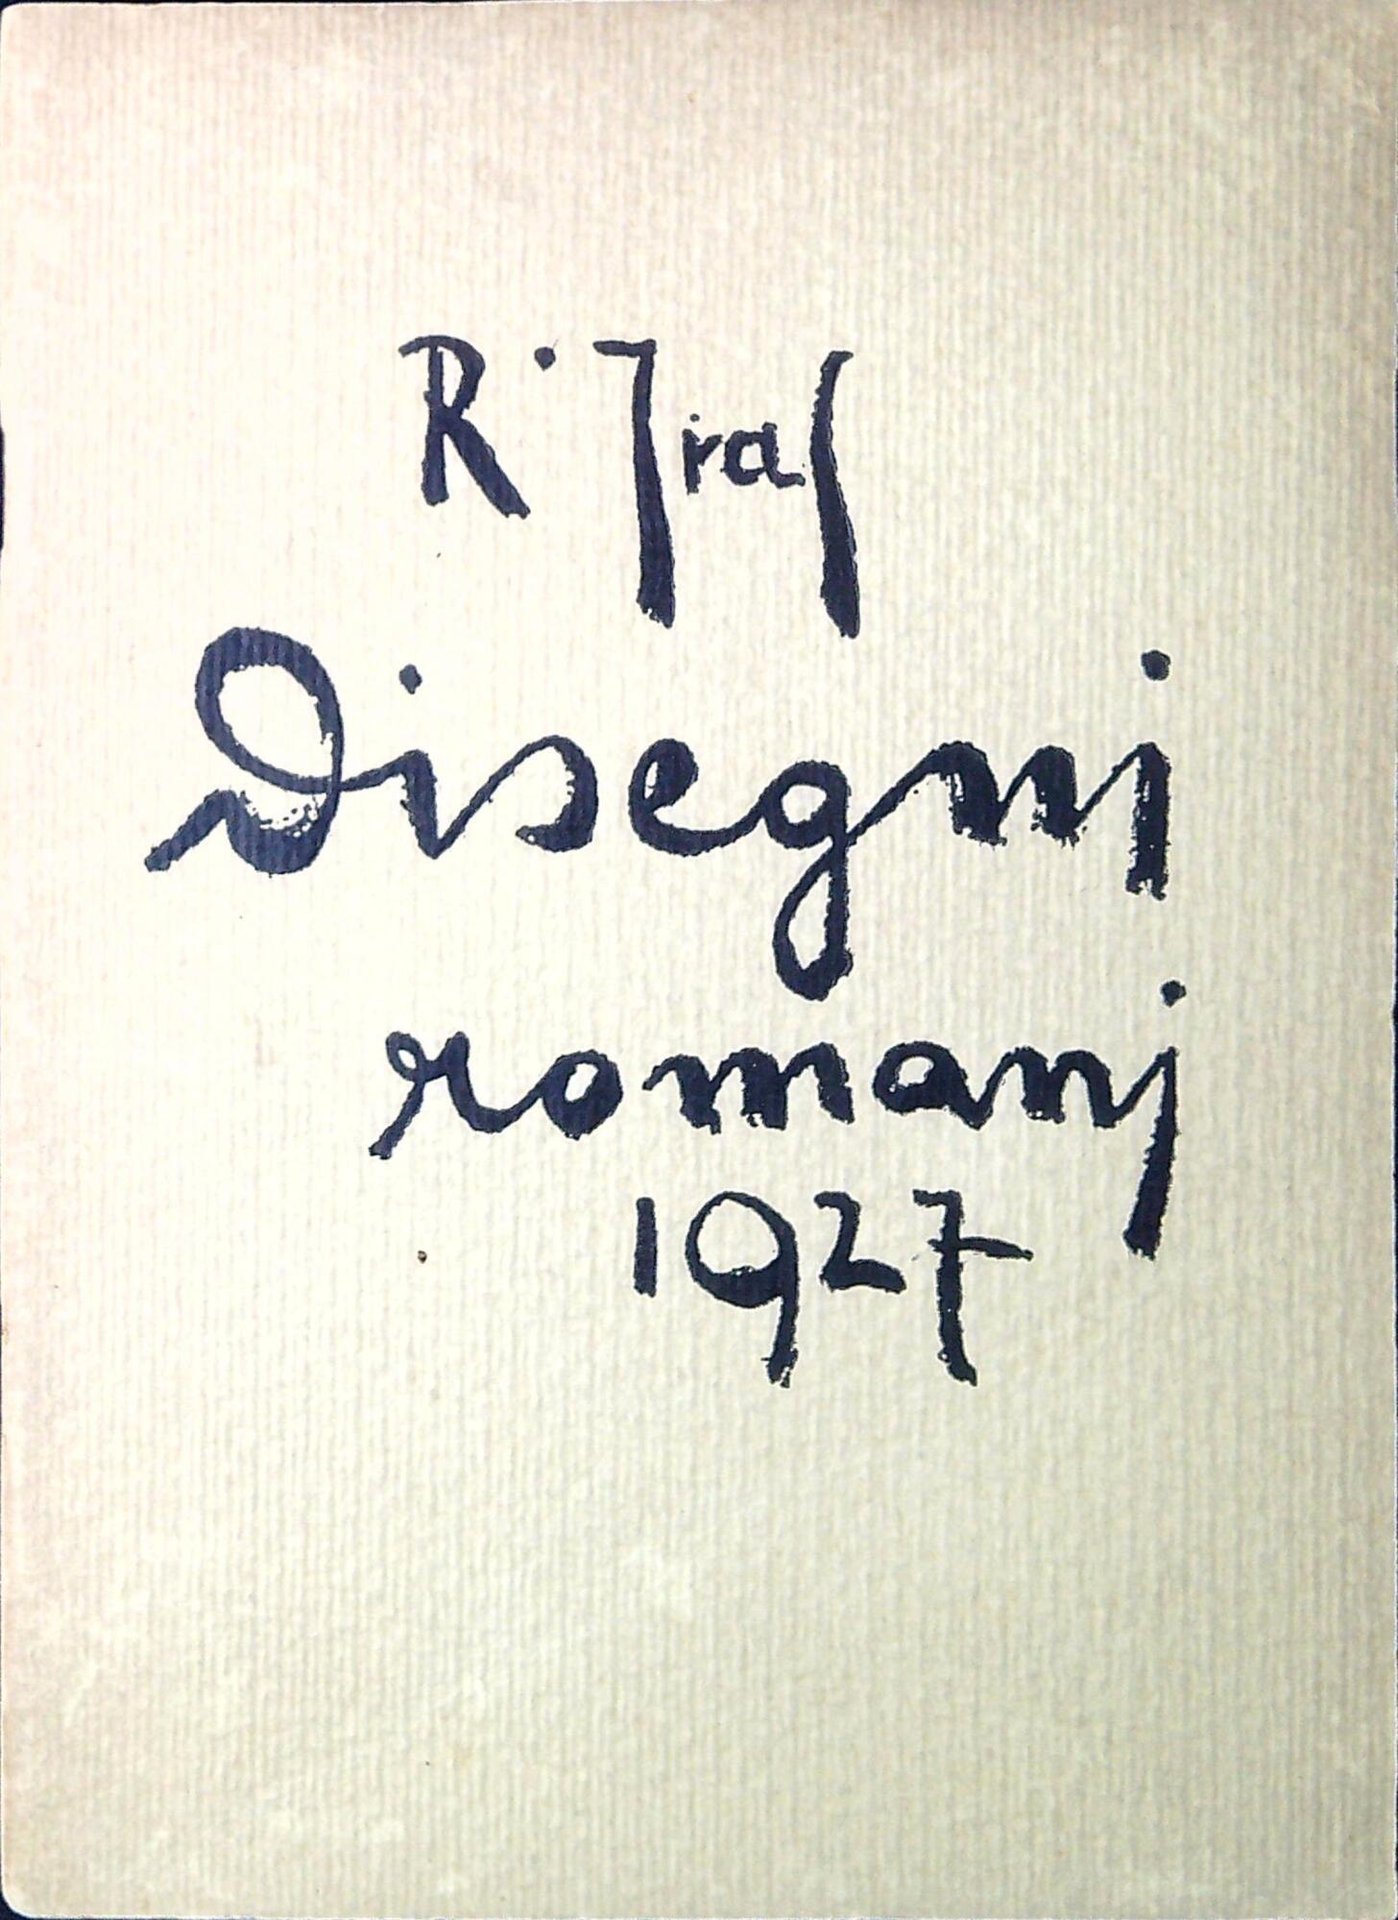 R. Jras
Disegni
romani
1927